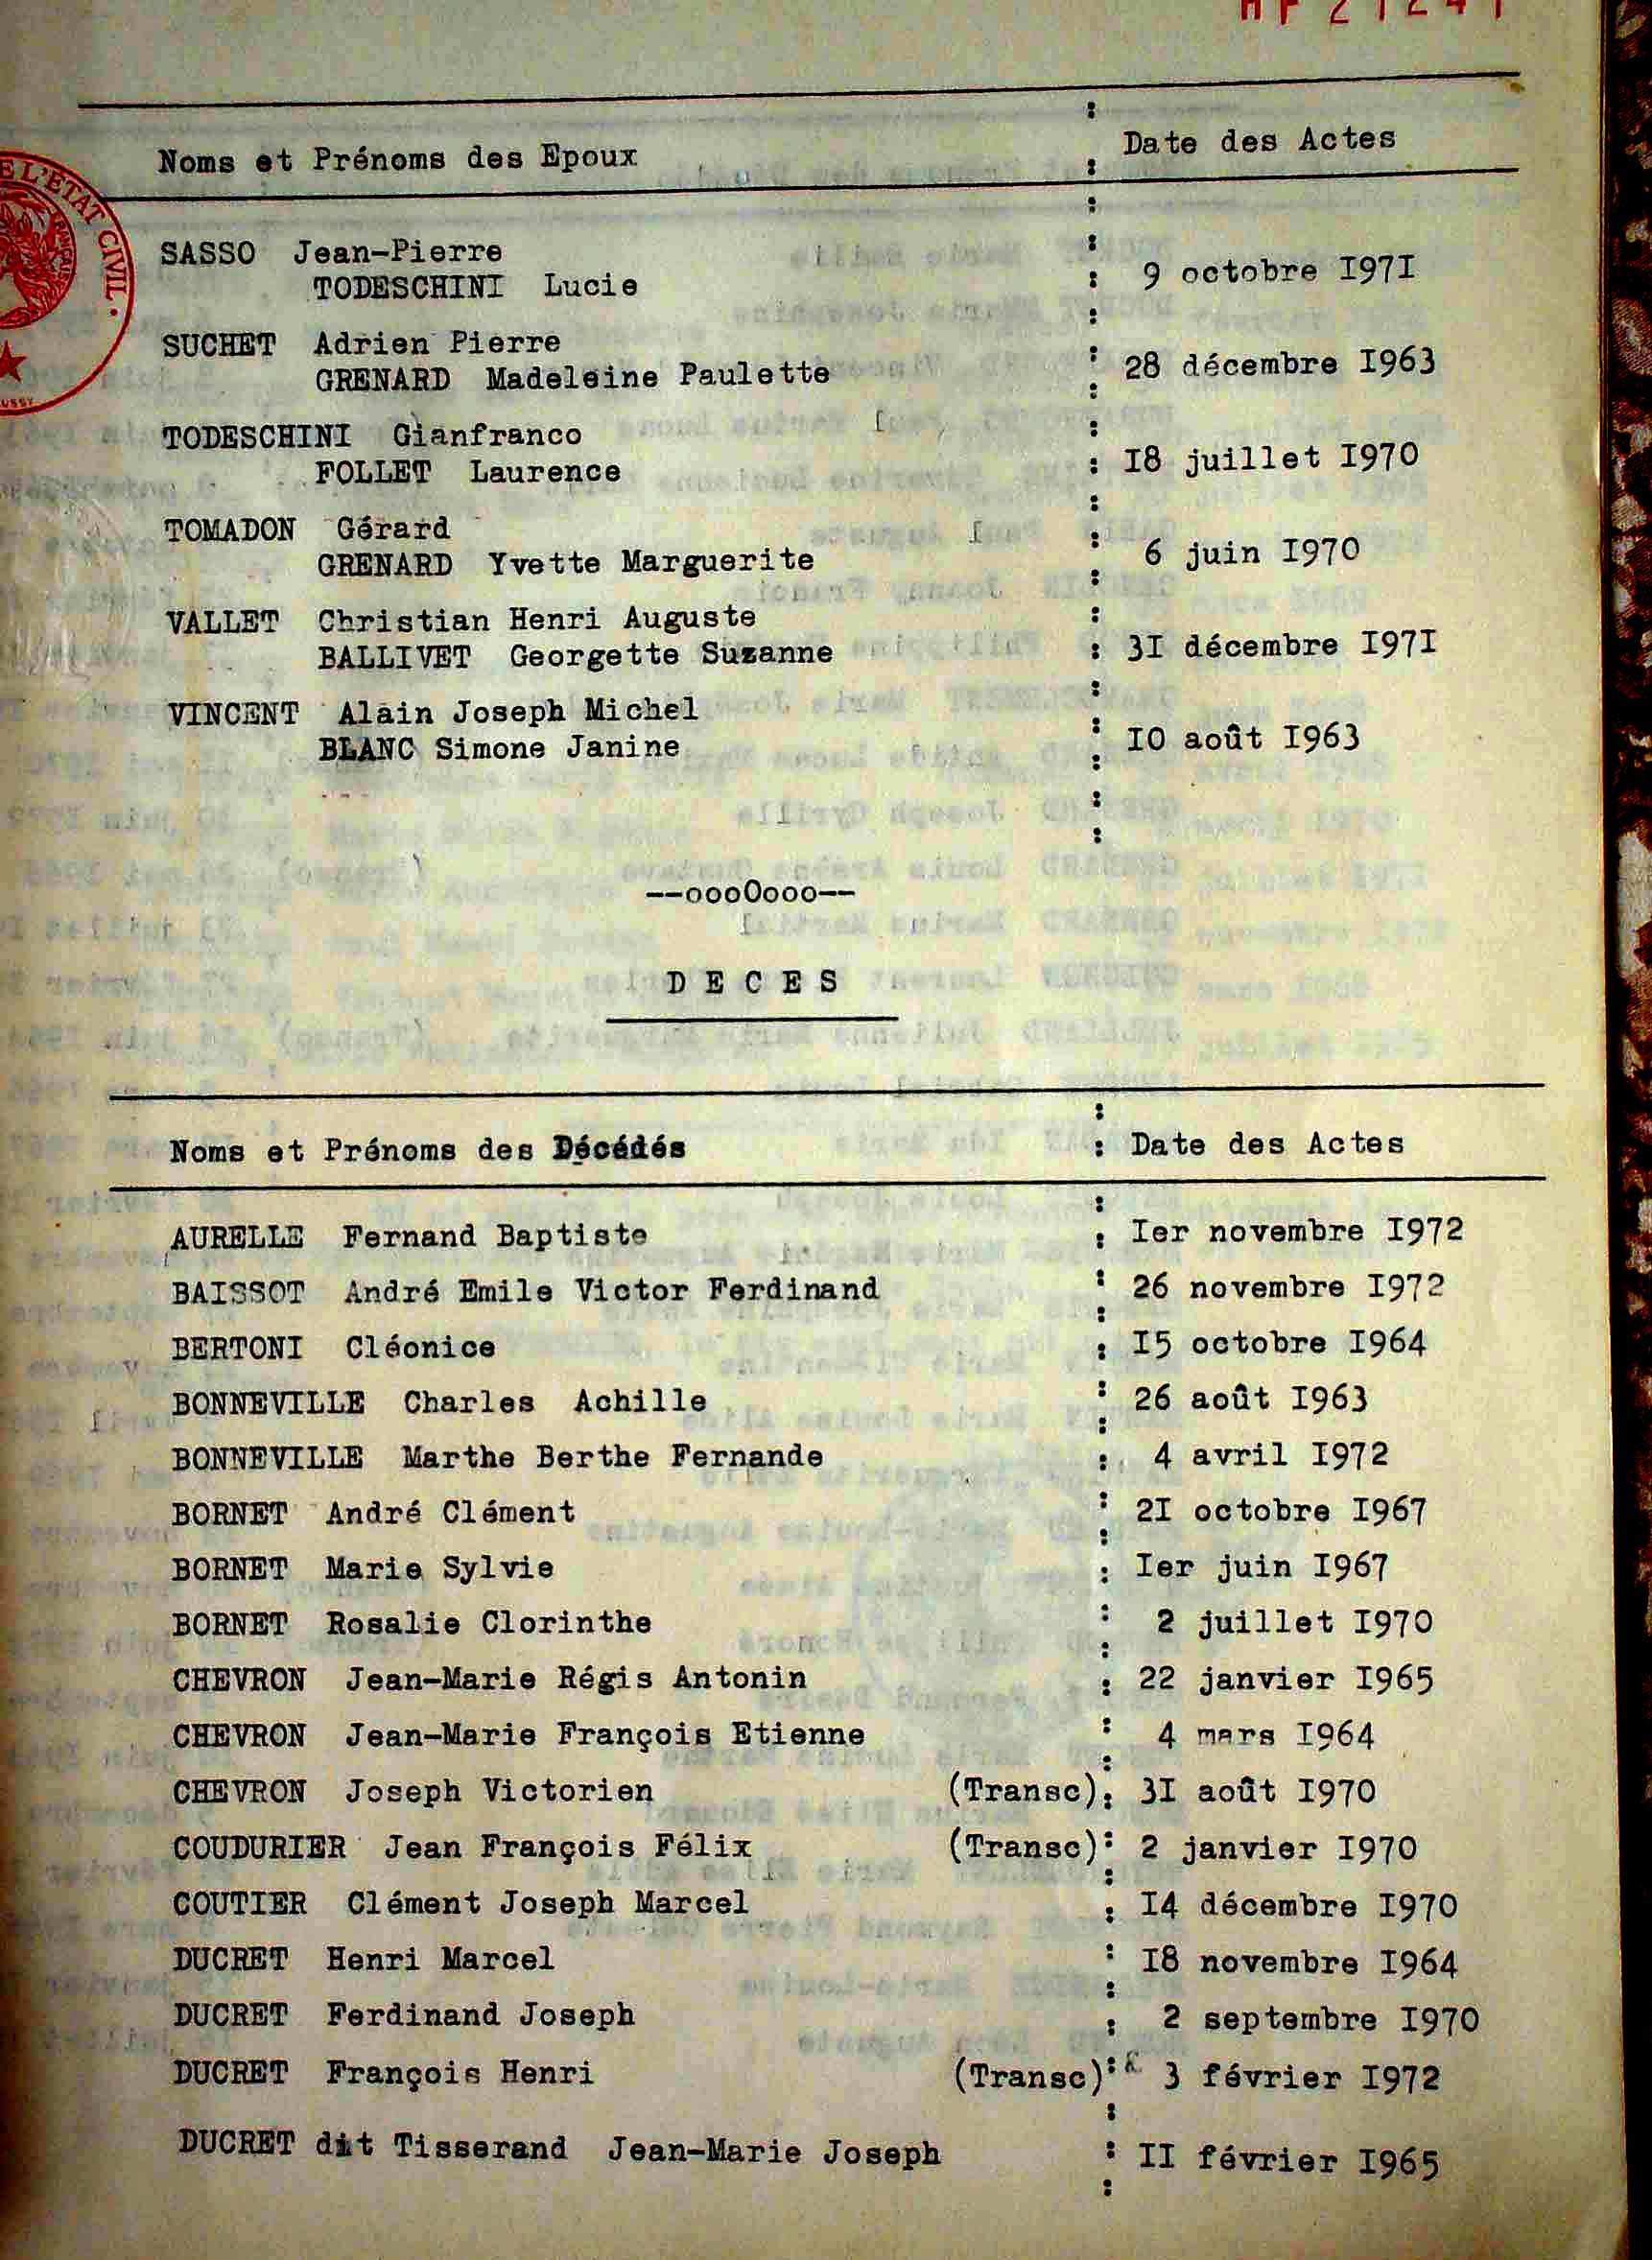 Noms et Prénoms des Epoux : Date des Actes
E L'ETAT CIVIL.
SASSO Jean-Pierre
TODESCHINI Lucie : 9 octobre I97I
SUCHET Adrien Pierre
GRENARD Madeleine Paulette : 28 décembre I963
TODESCHINI Gianfranco
FOLLET Laurence : I8 juillet I970
TOMADON Gérard
GRENARD Yvette Marguerite : 6 juin I970
VALLET Christian Henri Auguste
BALLIVET Georgette Suzanne : 3I décembre I97I
VINCENT Alain Joseph Michel
BLANC Simone Janine : I0 août I963
--ooo0ooo--
D E C E S
Noms et Prénoms des Décédés : Date des Actes
AURELLE Fernand Baptiste : Ier novembre I972
BAISSOT André Emile Victor Ferdinand : 26 novembre I972
BERTONI Cléonice : I5 octobre I964
BONNEVILLE Charles Achille : 26 août I963
BONNEVILLE Marthe Berthe Fernande : 4 avril I972
BORNET André Clément : 2I octobre I967
BORNET Marie Sylvie : Ier juin I967
BORNET Rosalie Clorinthe : 2 juillet I970
CHEVRON Jean-Marie Régis Antonin : 22 janvier I965
CHEVRON Jean-Marie François Etienne : 4 mars I964
CHEVRON Joseph Victorien (Transc): 3I août I970
COUDURIER Jean François Félix (Transc): 2 janvier I970
COUTIER Clément Joseph Marcel : I4 décembre I970
DUCRET Henri Marcel : I8 novembre I964
DUCRET Ferdinand Joseph : 2 septembre I970
DUCRET François Henri (Transc): 3 février I972
DUCRET dit Tisserand Jean-Marie Joseph : II février I965